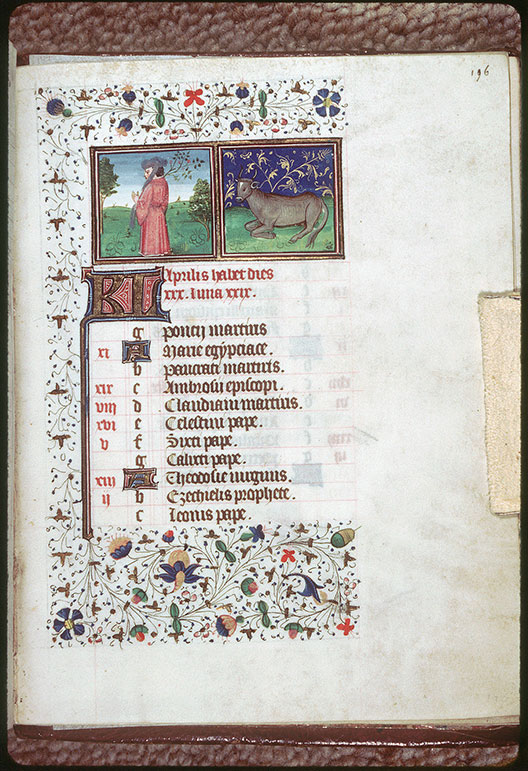 196
KL Aprilis habet dies
xxx. luna xxix.
g Poncij martiris
xi A Marie egypciace.
b Pancrati martiris.
xix c Ambrosij episcopi.
viij d Claudiani martiris.
xvi e Celestini pape.
v f Sixti pape.
g Calixti pape.
xiij A Theodosie virginis.
ij b Ezechielis prophete.
c Leonis pape.